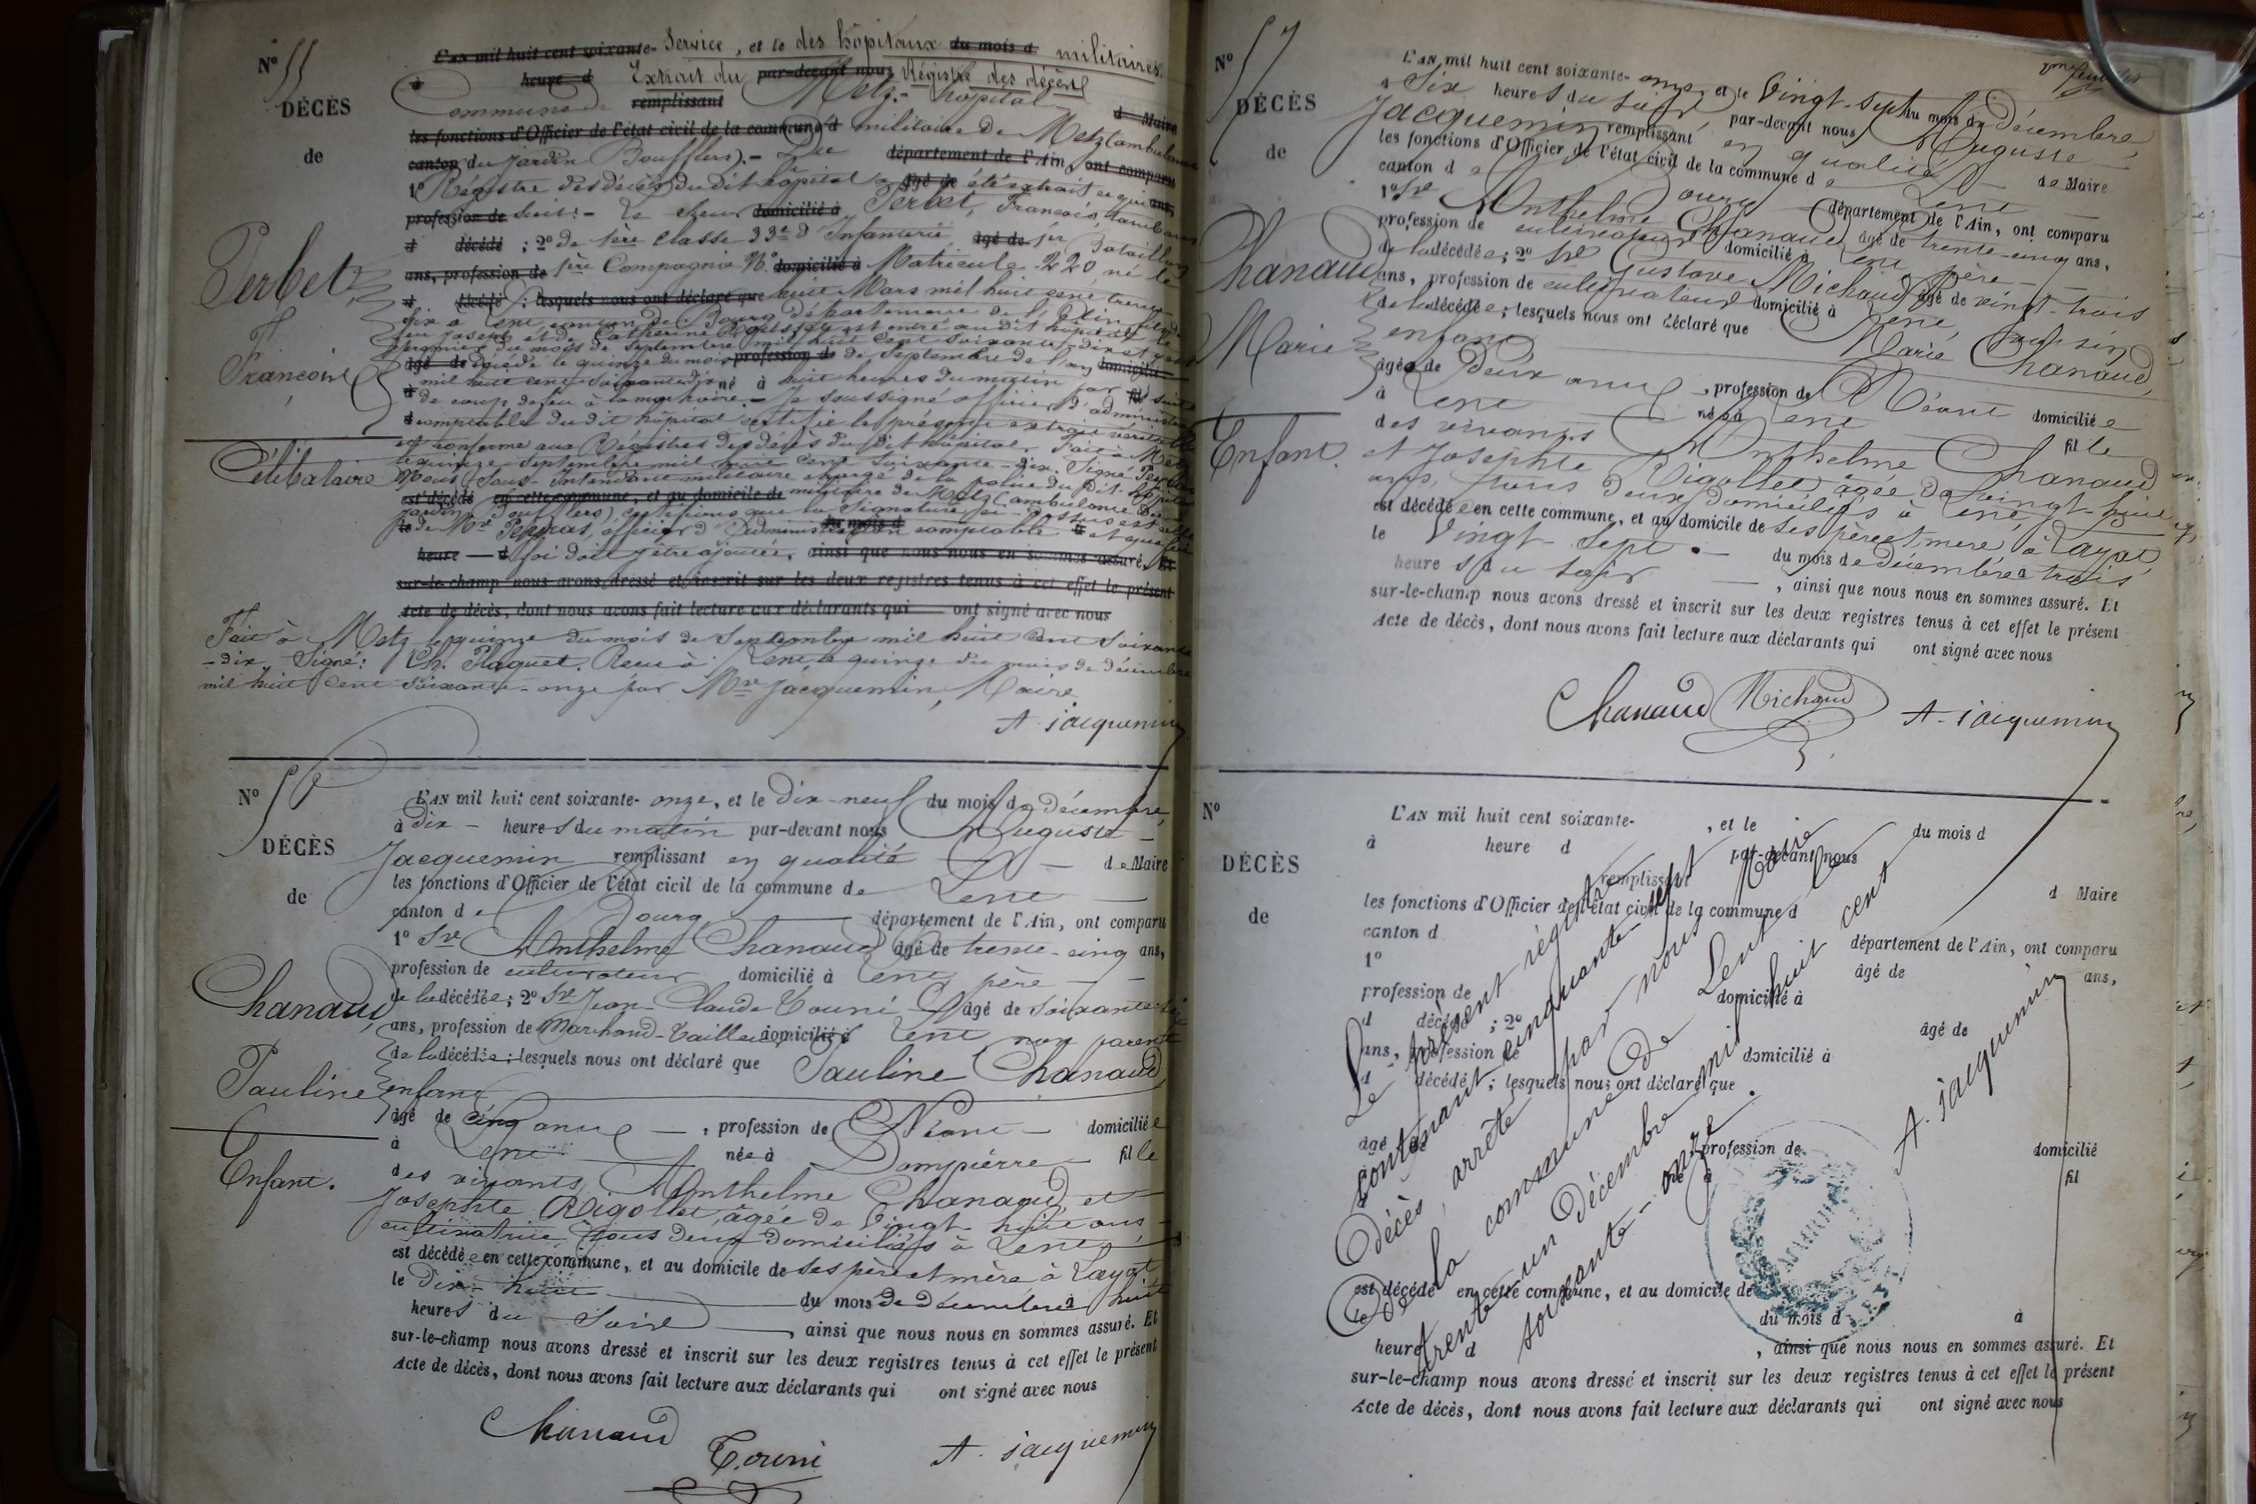 N° 55
DÉCÈS
de
Perbet
François
Célibataire
L'AN mil huit cent soixante- Service, et le des hôpitaux du mois d militaires.
à heure d Extrait du par-devant nous Régistre des décès
Commune de remplissant Metz.- hôpital d Maire
les fonctions d'Officier de l'état civil de la commune d militaire de Metz (ambulance
canton du jardin Boufflers).- Du département de l'Ain, ont comparu
1° Régistre des décès du dit hôpital a âgé de été extrait ce qui ans,
profession de suit:- le sieur domicilié à Perbet, François, tambour
d décédé ; 2° de 1ère classe 33e d'Infanterie âgé de 1er Bataillon
ans, profession de 1ère Compagnie N° domicilié à Matricule 220 né le
d décédé ; lesquels nous ont déclaré que huit Mars mil huit cent trente-
six à Lent canton de Bourg Département de l'Ain, fils de
Joseph et de Catherine est entré au dit hôpital le
premier du mois de Septembre mil huit cent soixante-dix et y est
âgé de décédé le quinze du mois profession de de Septembre de l'an domicilié
mil huit cent soixante-dix né à huit heures du matin par fil suite
de coup de feu à la machoire.- Je soussigné officier d'administration
comptable du dit hôpital certifie le présent extrait véritable
et conforme aux Registres des décès du dit hôpital. Fait à Metz
le quinze Septembre mil huit cent soixante-dix. Signé
Nous Sous-Intendant militaire chargé de la police du dit hôpital
est décédé en cette commune, et au domicile de militaire de Metz (ambulance du
jardin Boufflers) certifions que la signature ci-dessus est celle
le de Mr , officier d'Administration du mois d comptable à et que foi
heure d foi doit y être ajoutée, ainsi que nous nous en sommes assuré. Et
sur-le-champ nous avons dressé et inscrit sur les deux registres tenus à cet effet le présent
Acte de décès, dont nous avons fait lecture aux déclarants qui ont signé avec nous
Fait à Metz le quinze du mois de Septembre mil huit cent soixante
-dix. Signé: Ch. Plaquet. Reçu à Lent, le quinze du mois de décembre
mil huit cent soixante-onze par Mr Jacquemin, Maire
A. jacquemin
N° 56
DÉCÈS
de
Chanaud
Pauline
Enfant.
L'AN mil huit cent soixante- onze, et le dix-neuf du mois de décembre,
à dix - heures du matin par-devant nous Auguste
Jacquemin remplissant en qualité de Maire
les fonctions d'Officier de l'état civil de la commune de Lent
canton de Bourg département de l'Ain, ont comparu
1° Sr Anthelme Chanaud âgé de trente-cinq ans,
profession de cultivateur domicilié à Lent père
de la décédée; 2° Sr Jean-Claude Tourni âgé de soixante-six
ans, profession de Marchand-Tailleur domicilié à Lent non parent
de la décédée; lesquels nous ont déclaré que Pauline Chanaud,
enfant
âgé de cinq ans, profession de Néant domiciliée
à Lent née à Dompierre fille
des vivants Anthelme Chanaud, et
Josephte Rigollet, âgée de vingt-huit ans
cultivatrice, tous deux domiciliés à Lent,
est décédée en cette commune, et au domicile de ses père et mère à Layat
le dix-huit du mois de décembre à huit
heures du soir, ainsi que nous nous en sommes assuré. Et
sur-le-champ nous avons dressé et inscrit sur les deux registres tenus à cet effet le présent
Acte de décès, dont nous avons fait lecture aux déclarants qui ont signé avec nous
Chanaud
Tourni
A. jacquemin
N° 57
DÉCÈS
de
Chanaud
Marie
Enfant.
L'AN mil huit cent soixante- onze, et le vingt-sept du mois de décembre,
à six heures du soir par-devant nous Auguste
Jacquemin remplissant en qualité de Maire
les fonctions d'Officier de l'état civil de la commune de Lent
canton de Bourg département de l'Ain, ont comparu
1° Sr Anthelme Chanaud âgé de trente-cinq ans,
profession de cultivateur domicilié à Lent père
de la décédée; 2° Sr Gustave Michaud âgé de vingt-trois
ans, profession de cultivateur domicilié à Lent, cousin
de la décédée; lesquels nous ont déclaré que Marie Chanaud,
enfant
âgée de deux ans, profession de Néant domiciliée
à Lent née à Lent fille
des vivants Anthelme Chanaud
et Josephte Rigollet, âgée de vingt-huit
ans, tous deux domiciliés à Lent,
est décédée en cette commune, et au domicile de ses père et mère à Layat
le vingt-sept du mois de décembre à trois
heures du soir, ainsi que nous nous en sommes assuré. Et
sur-le-champ nous avons dressé et inscrit sur les deux registres tenus à cet effet le présent
Acte de décès, dont nous avons fait lecture aux déclarants qui ont signé avec nous
Chanaud Michaud A. jacquemin
N°
DÉCÈS
de
L'AN mil huit cent soixante- , et le du mois d
à heure d par-devant nous
remplissant d Maire
les fonctions d'Officier de l'état civil de la commune d
canton d département de l'Ain, ont comparu
1° âgé de ans,
profession de domicilié à
d décédé ; 2° âgé de
ans, profession de domicilié à
d décédé ; lesquels nous ont déclaré que
âgé de profession de domicilié
à né à fil
est décédé en cette commune, et au domicile de
le du mois d à
heure d , ainsi que nous nous en sommes assuré. Et
sur-le-champ nous avons dressé et inscrit sur les deux registres tenus à cet effet le présent
Acte de décès, dont nous avons fait lecture aux déclarants qui ont signé avec nous
Le présent régistre
contenant cinquante-sept
décès, arrêté par nous Maire
de la commune de Lent le
trente-un Décembre mil huit cent
soixante-onze.
A. jacquemin
MAIRIE